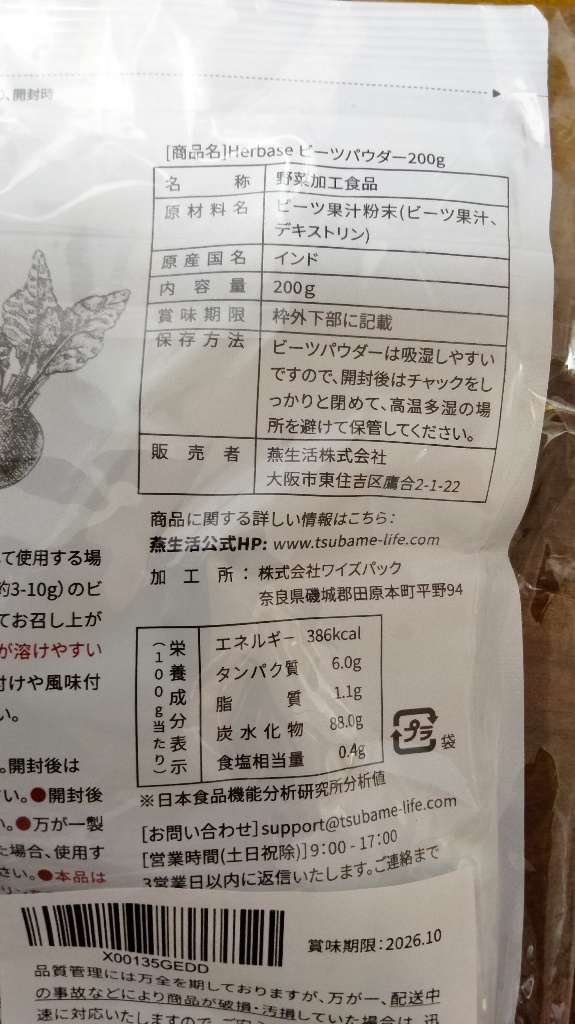 、開封時
[商品名]Herbase ビーツパウダー200g
名称 野菜加工食品
原材料名 ビーツ果汁粉末(ビーツ果汁、
デキストリン)
原産国名 インド
内容量 200g
賞味期限 枠外下部に記載
保存方法 ビーツパウダーは吸湿しやすい
ですので、開封後はチャックをし
っかりと閉めて、高温多湿の場
所を避けて保管してください。
販売者 燕生活株式会社
大阪市東住吉区鷹合2-1-22
商品に関する詳しい情報はこちら:
燕生活公式HP: www.tsubame-life.com
加工所:株式会社ワイズパック
奈良県磯城郡田原本町平野94
て使用する場
約3-10g)のビ
てお召し上が
が溶けやすい
付けや風味付
い。
。開封後は
い。●開封後
い。●万が一製
た場合、使用す
さい。●本品は
栄養成分表示
(100g当たり)
エネルギー 386kcal
タンパク質 6.0g
脂質 1.1g
炭水化物 88.0g
食塩相当量 0.4g
プラ 袋
※日本食品機能分析研究所分析値
[お問い合わせ]support@tsubame-life.com
[営業時間(土日祝除)]9:00-17:00
3営業日以内に返信いたします。ご連絡まで
X00135GEDD
賞味期限:2026.10
品質管理には万全を期しておりますが、万が一、配送中
の事故などにより商品が破損・汚損していた場合は、迅
速に対応いたしますので、